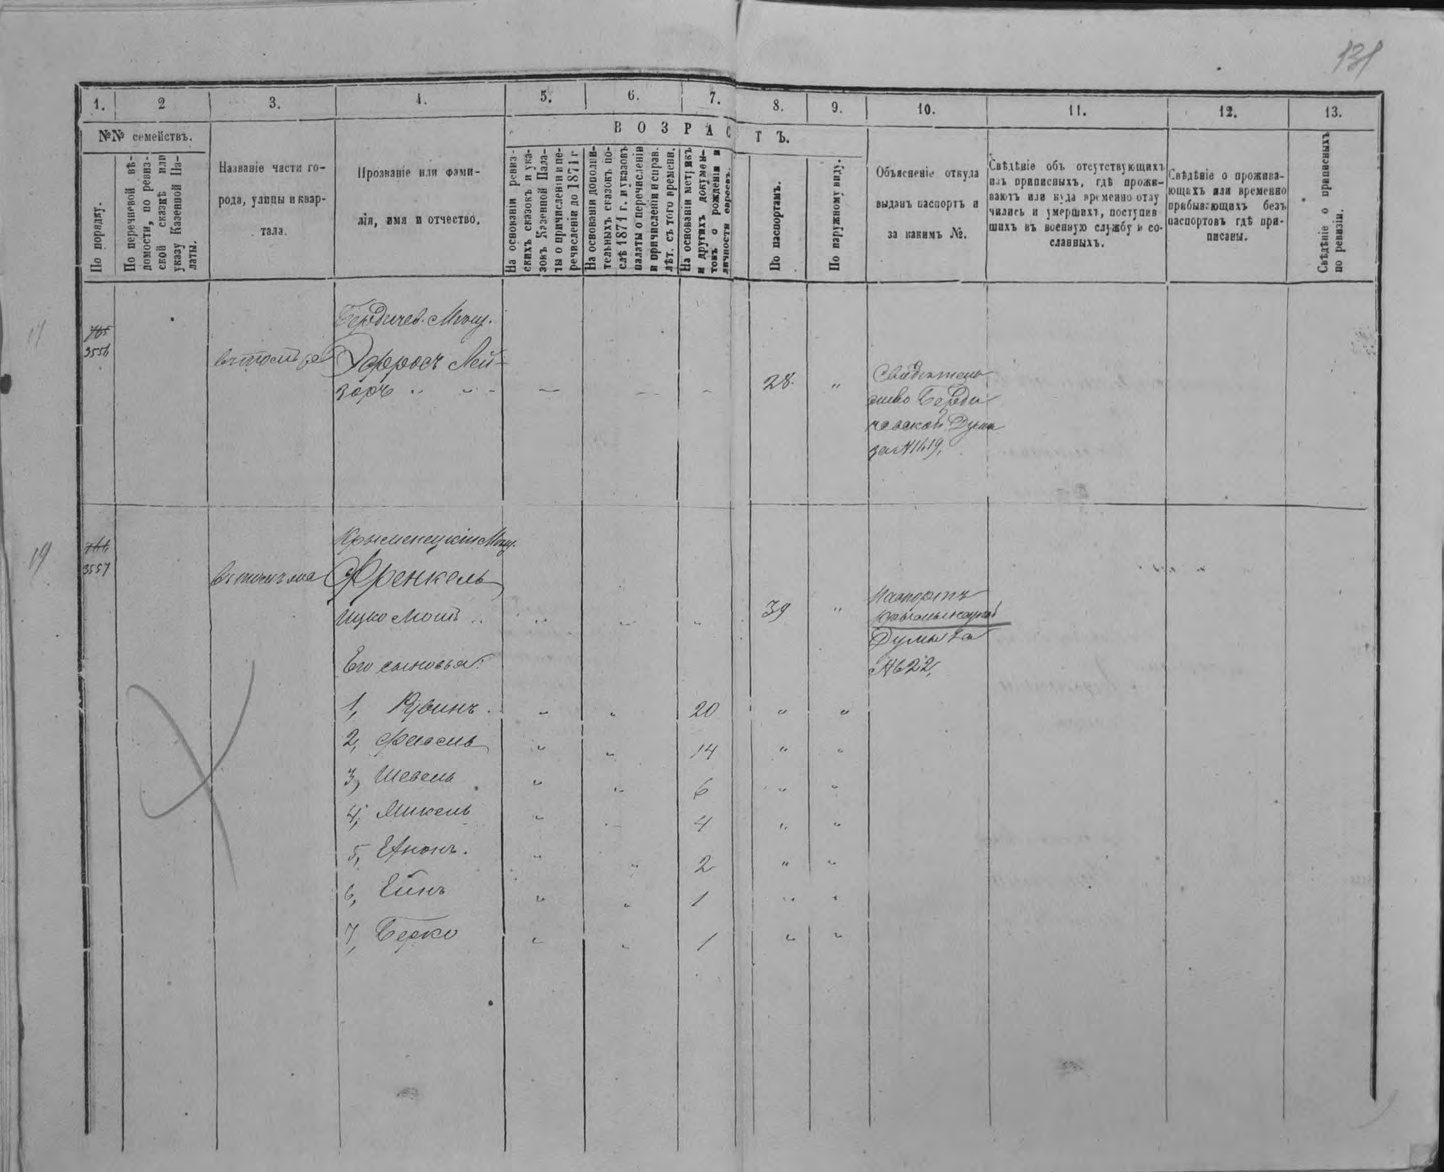 131
1. 2 3. 4. 5. 6. 7. 8. 9. 10. 11. 12. 13.
№№ семействъ.
ВОЗРАСТЪ.
По порядку.
По перечневой вѣ-
домости, по ревиз-
ской сказкѣ или
указу Казенной Па-
латы.
Названіе части го-
рода, улицы и квар-
тала.
Прозваніе или фами-
лія, имя и отчество.
На основаніи ревиз-
скихъ сказокъ и ука-
зовъ Казенной Пала-
ты о причисленіи и пе-
речисленіи до 1871 г
На основаніи дополни-
тельныхъ сказокъ по-
слѣ 1871 г. и указовъ
палаты о перечисленіи
и причисленіи и справ.
лѣт. съ того времени.
На основаніи метрикъ
и другихъ докумен-
товъ о рожденіи и
личности евреевъ.
По паспортамъ.
По наружному виду.
Объясненіе откуда
выданъ паспортъ и
за какимъ №.
Свѣдѣніе объ отсутствующихъ
изъ приписныхъ, гдѣ прожи-
ваютъ или куда временно отлу
чились и умершихъ, поступив
шихъ въ военную службу и со-
сланныхъ.
Свѣдѣніе о прожива-
ющихъ или временно
прибывающихъ безъ
паспортовъ гдѣ при-
писаны.
Свѣдѣніе о приписныхъ
по ревизіи.
17
3556
Бердичев. Мѣщ.
Эфросъ Лей-
зоръ
28
Свидѣтель
ство Берди
чевской Думы
за №1419,
19
3557
Мѣщ.
Френкель
Ицко Мош
39
Паспортъ
Думы за
№622,
Его сыновья:
1, Рувинъ. 20
2, Файвель 14
3, Шевель 6
4, Михель 4
5, 2
6, 1
7, Берко 1